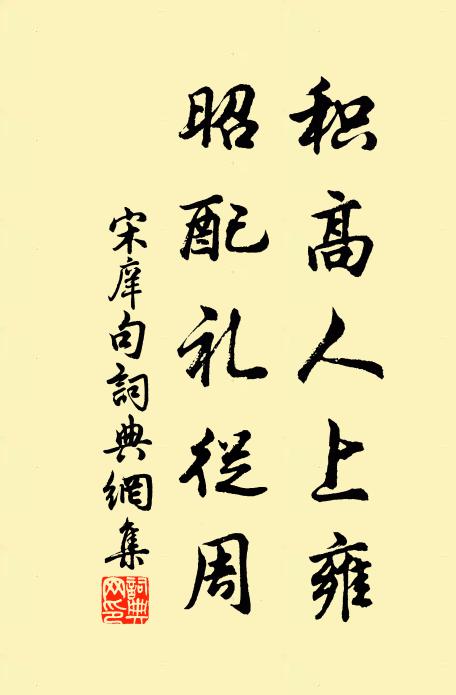 积高人上雍
昭配礼從周
宋庠句詞典網集
詞典網印